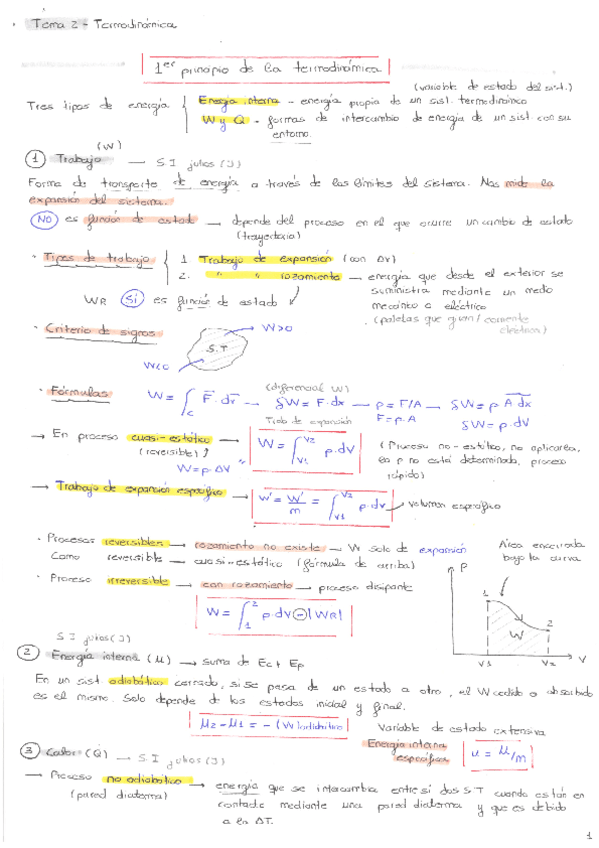 Tema 2 - Termodinámica
1er principio de la termodinámica
(variable de estado del sist.)
Tres tipos de energía
Energía interna - energía propia de un sist. termodinámico
W y Q - formas de intercambio de energía de un sist con su
entorno.
(W)
1 Trabajo → S.I julios (J)
Forma de transporte de energía a través de los límites del sistema. Nos mide la
expansión del sistema.
NO es función de estado → depende del proceso en el que ocurre un cambio de estado
(trayectoria)
· Tipos de trabajo
1. Trabajo de expansión (con Δv)
2. " " rozamiento → energía que desde el exterior se
suministra mediante un medio
mecánico o eléctrico
(paletas que giran / corriente
eléctrica)
WR SÍ es función de estado
· Criterio de signos
W>0
S.T
W<0
· Fórmulas W = ∫c F̄·dr̄ → (diferencial W) δW = F·dx → p = F/A → δW = p·A dx
F = p·A δW = p·dV
Trab de expansión
→ En proceso cuasi-estático → W = ∫V1 V2 p·dV
(reversible)
W = p·ΔV
(Proceso no-estático, no aplicarla,
la p no está determinada, proceso
rápido)
→ Trabajo de expansión específico → w' = W'/m = ∫V1 V2 p·dv → volumen específico
· Procesos reversibles → rozamiento no existe → W solo de expansión
Como reversible → cuasi-estático (fórmula de arriba)
Área encerrada
bajo la curva
· Proceso irreversible → con rozamiento → proceso disipante
W = ∫1 2 p·dV - |WR|
P
1
2
W
V1 V2 V
S.I julios (J)
2 Energía interna (U) → suma de Ec + Ep
En un sist adiabático cerrado, si se pasa de un estado a otro, el W cedido o absorbido
es el mismo. Solo depende de los estados inicial y final.
U2 - U1 = - (W)adiabático
Variable de estado extensiva
Energía interna
específica
u = U/m
3 Calor (Q) → S.I julios (J)
→ Proceso no adiabático → energía que se intercambia entre sí dos S.T cuando están en
(pared diaterma) contacto mediante una pared diaterma y que es debido
a la ΔT.
1